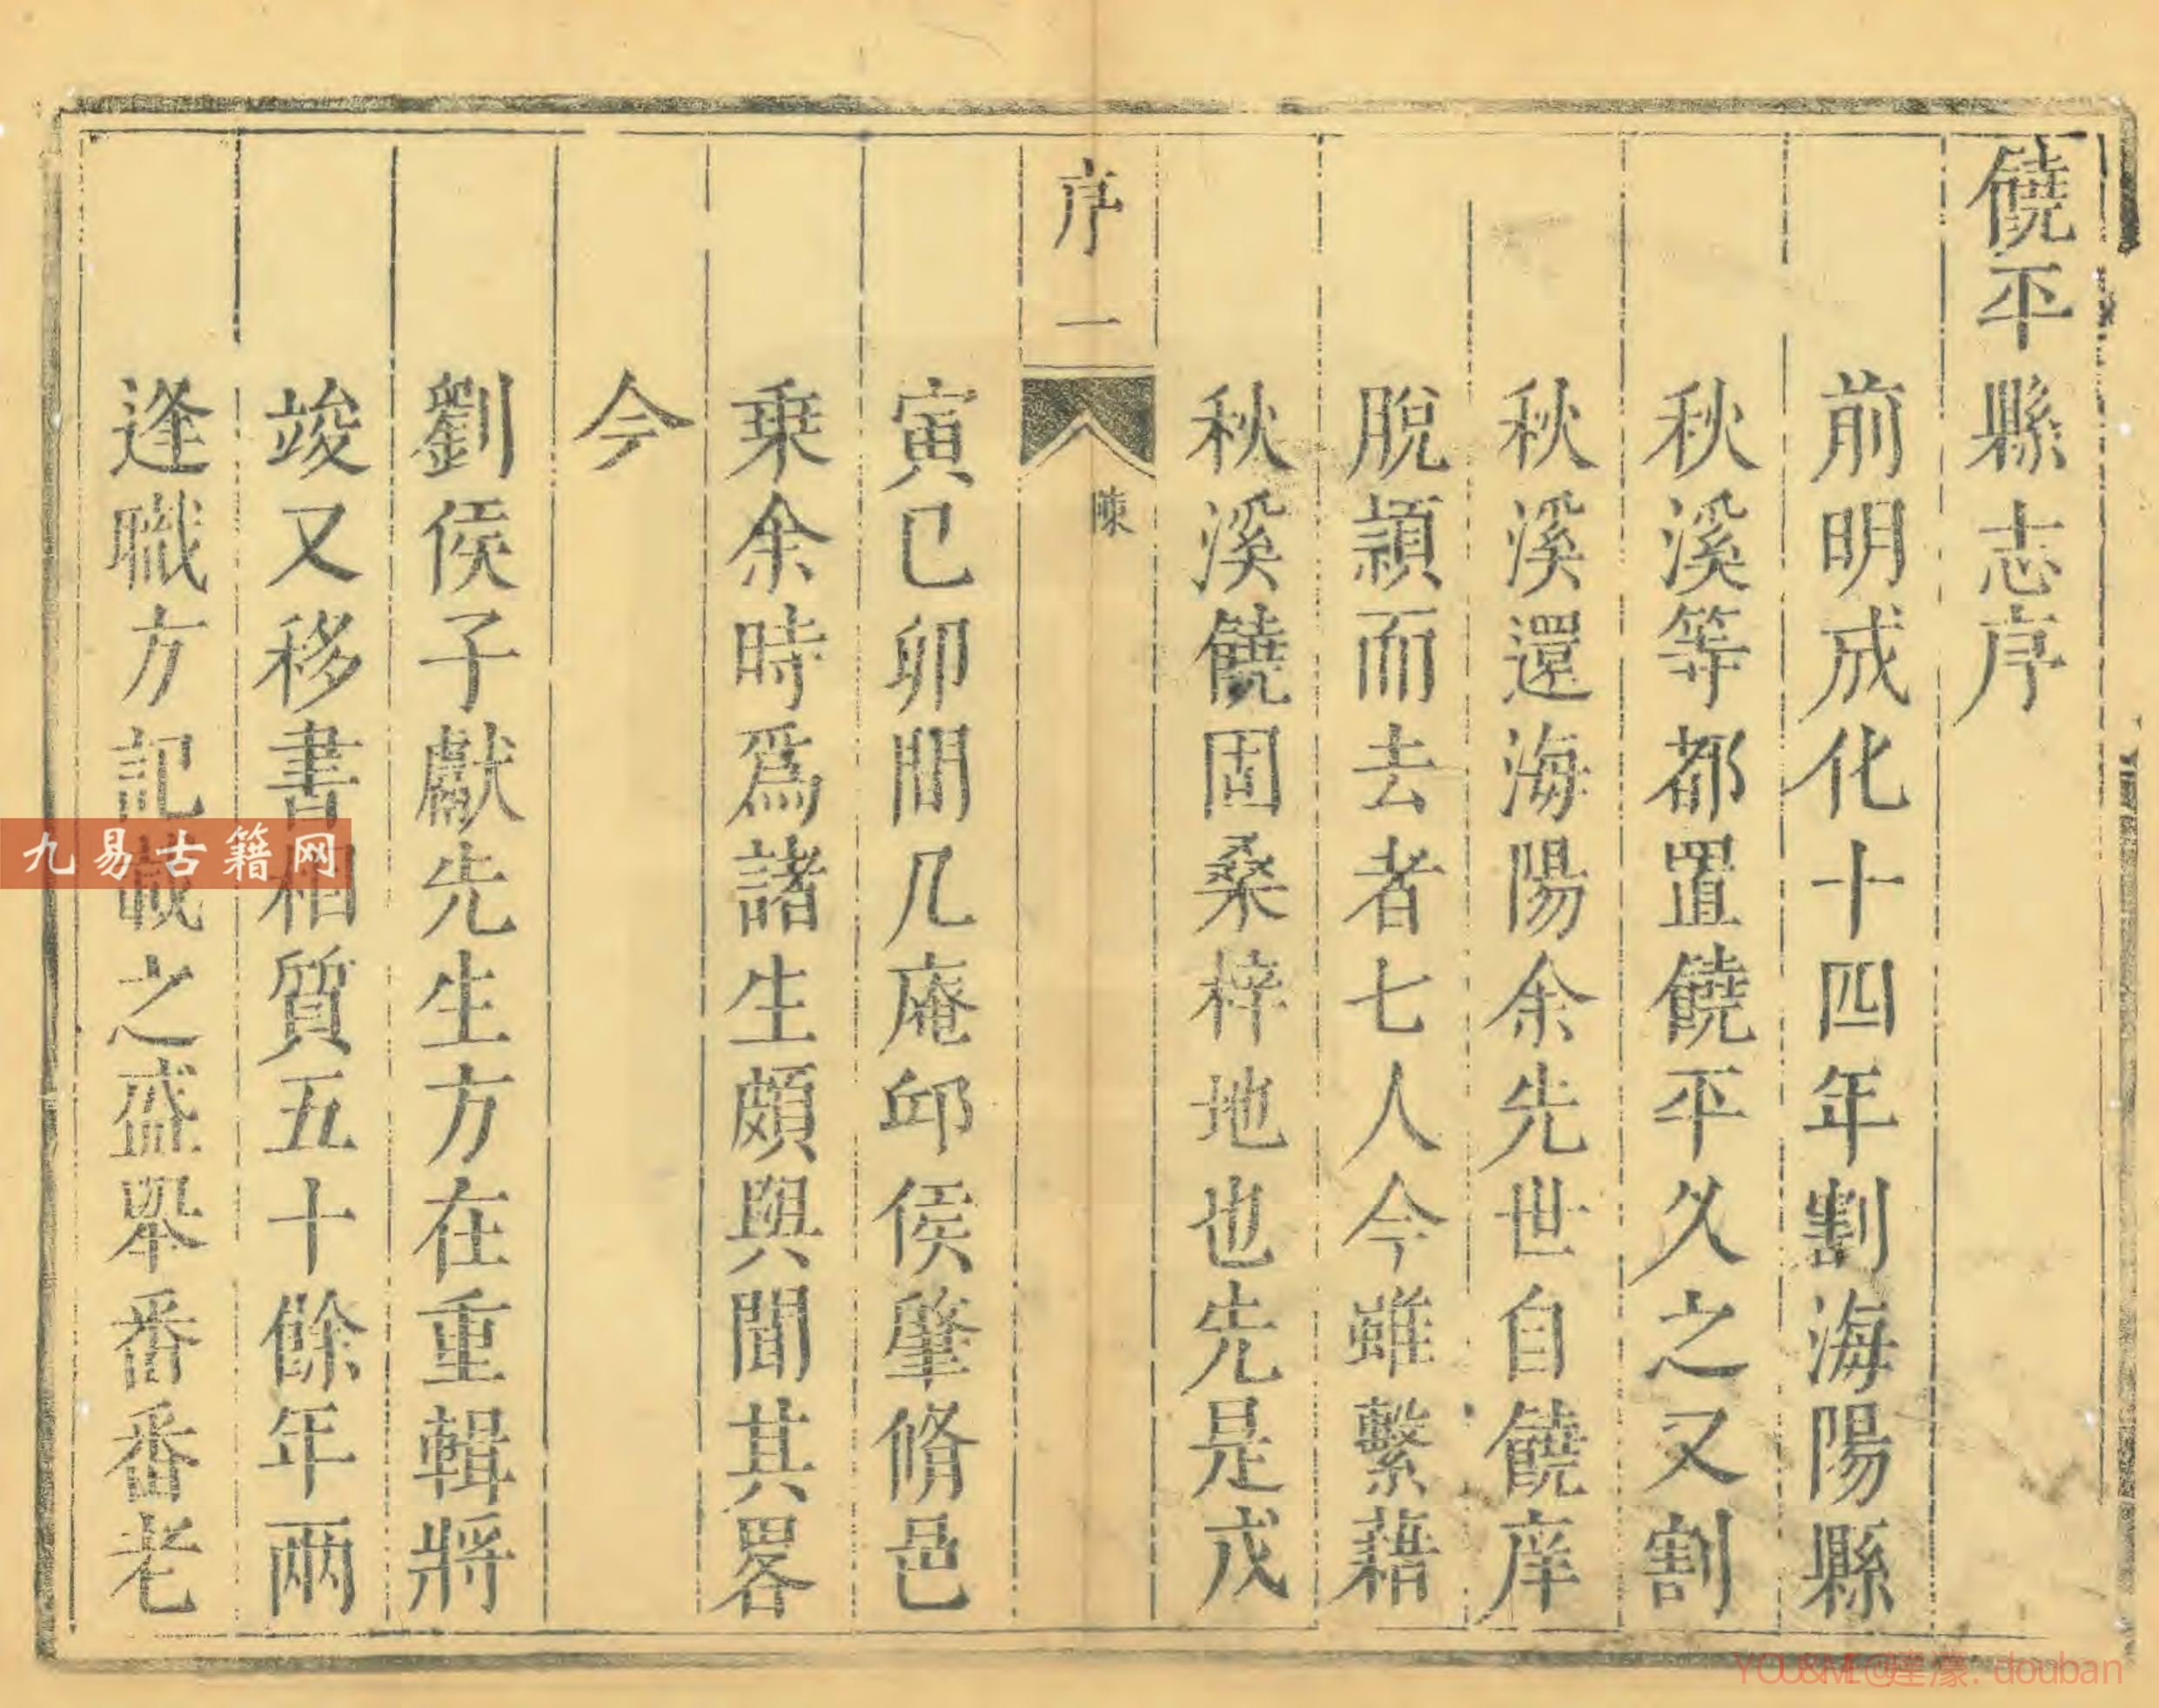 饒平縣志序
前明成化十四年割海陽縣
秋溪等都置饒平久之又割
秋溪還海陽余先世自饒庠
脫穎而去者七人今雖繫藉
秋溪饒固桑梓地也先是戊
序 一 陳
寅己卯間几庵邱侯肇脩邑
乗余時爲諸生頗與聞其畧
今
劉侯子獻先生方在重輯將
竣又移書相質五十餘年兩
逢職方記載之盛舉番番老
九易古籍网
YOU&ME@達濛. douban